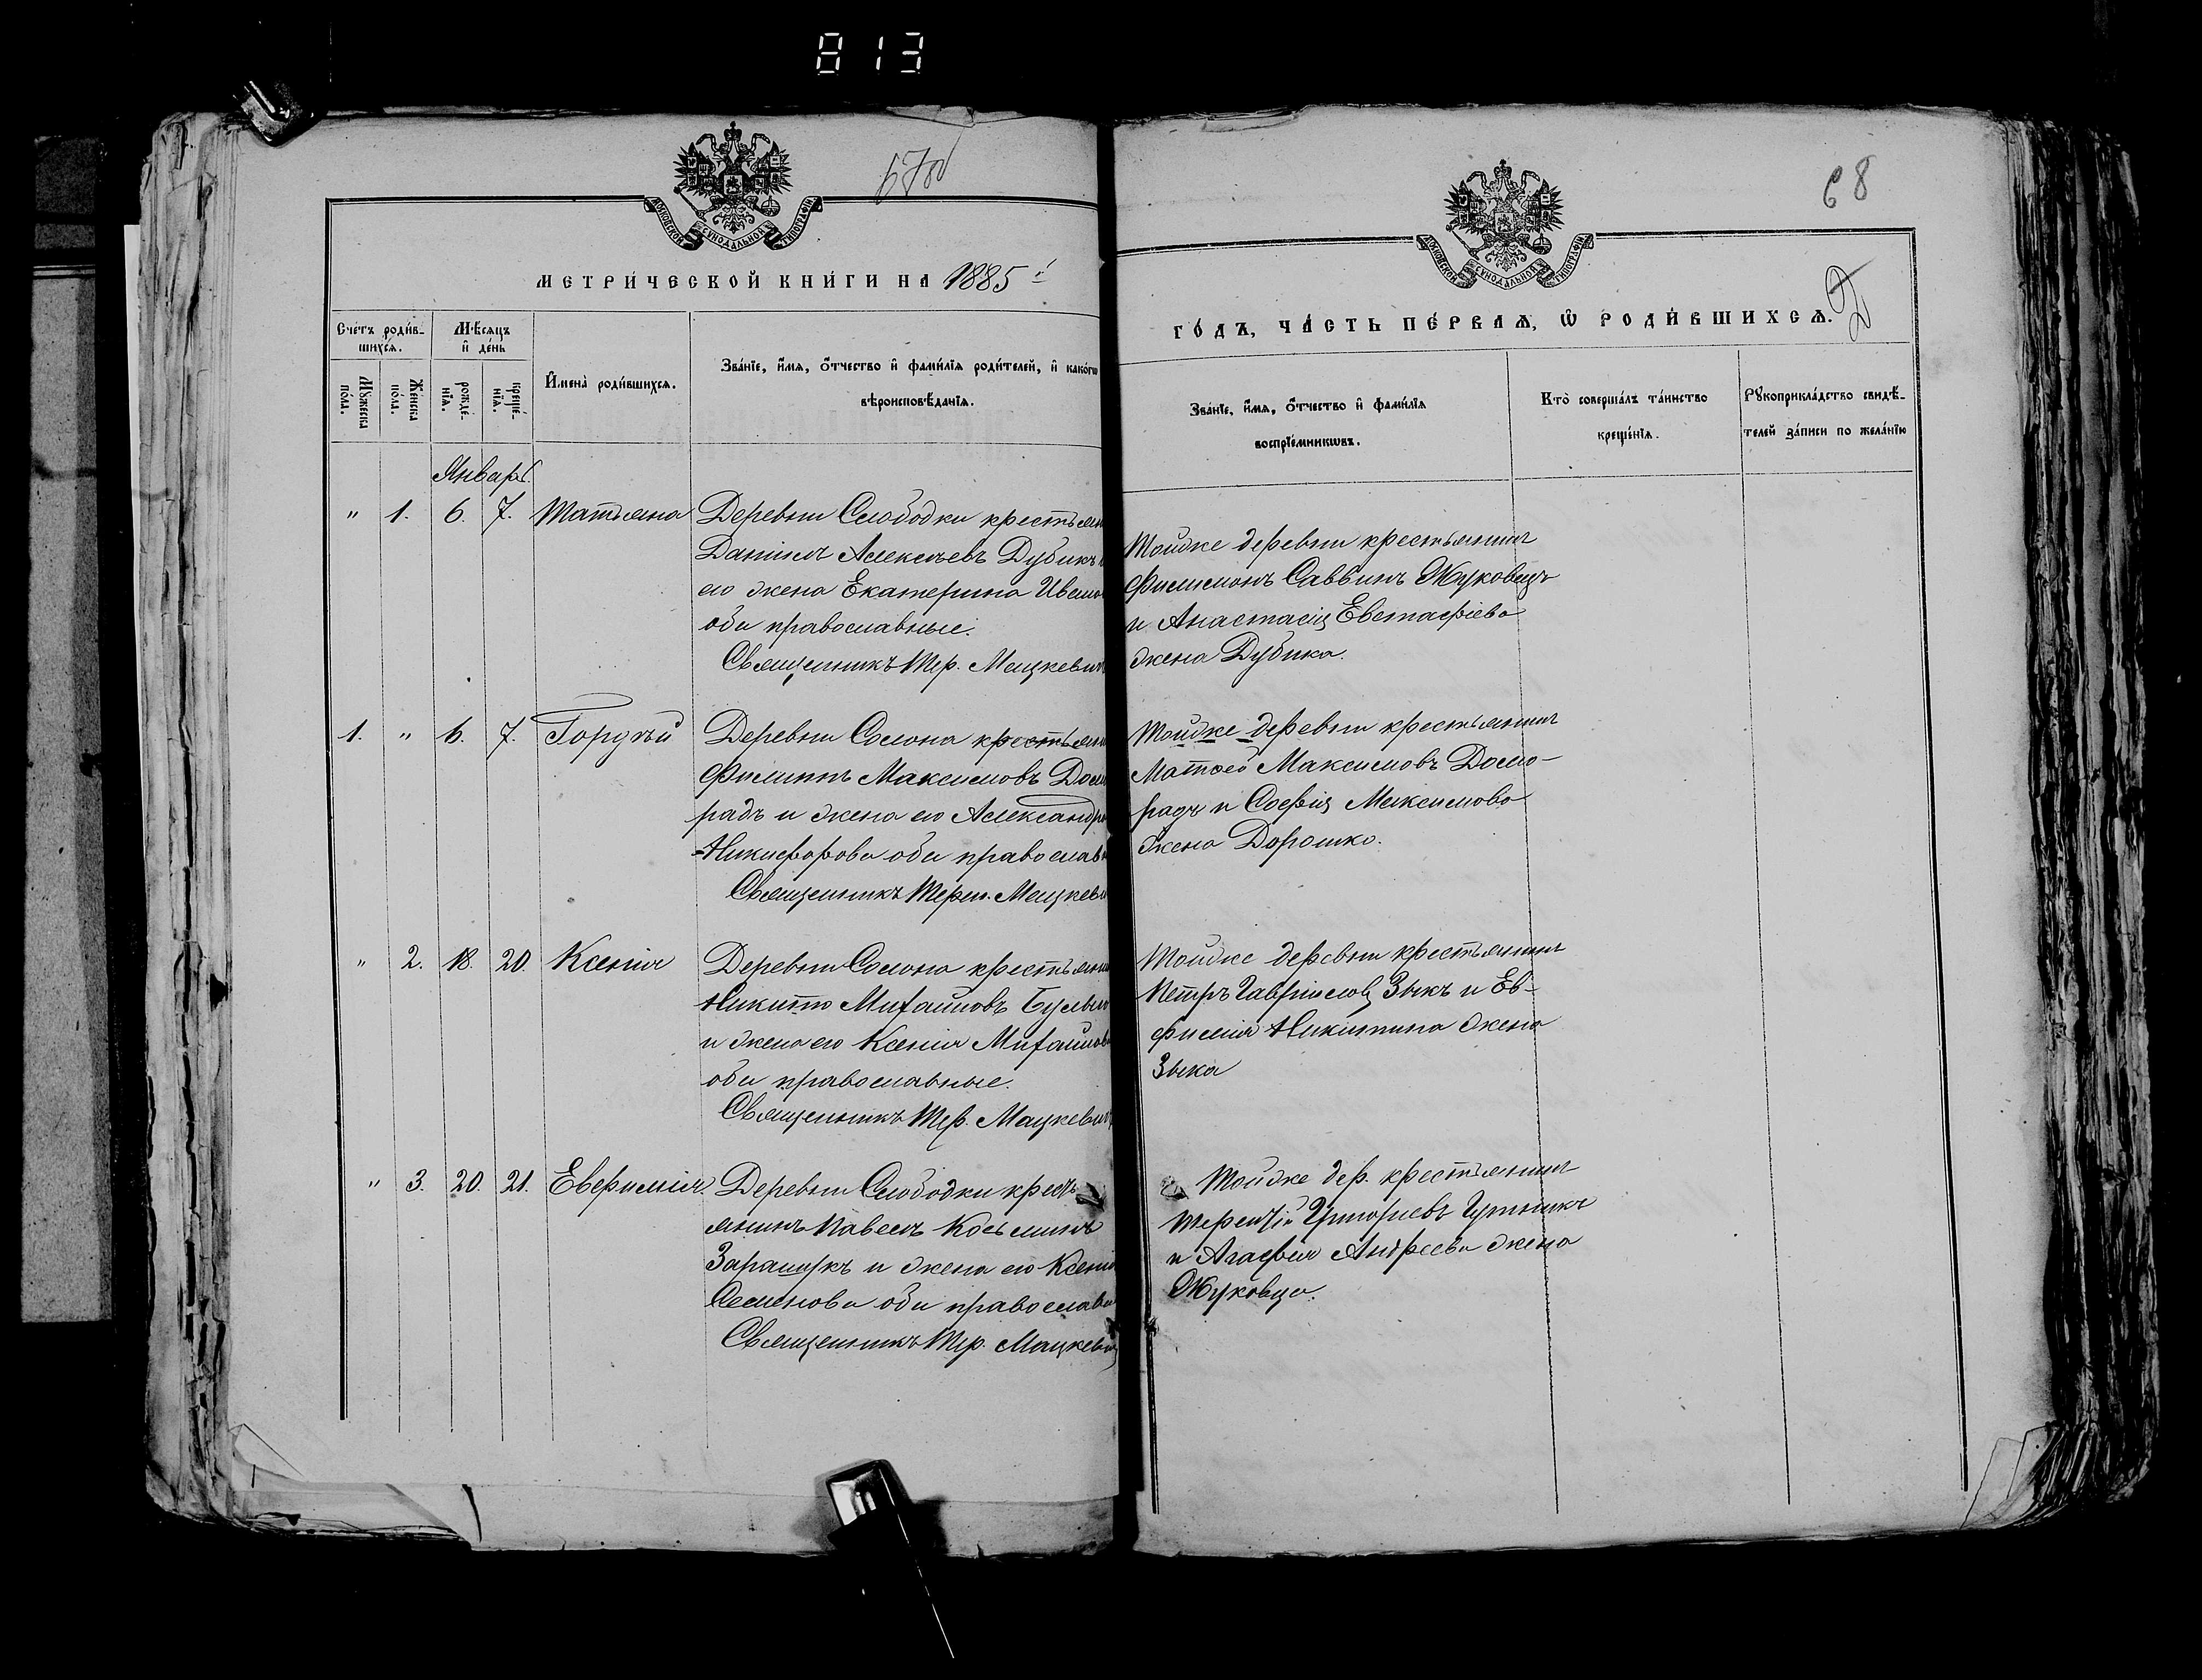 813
МОСКОВСКОЙ СУНОДАЛЬНОЙ ТИПОГРАФІИ
МЕТРИ́ЧЕСКОЙ КНИ́ГИ НА 1885 й
Сче́тъ роди́в-
шихсѧ.
Мѣсѧцъ
и де́нь
Мꙋжеска
по́ла.
Же́нска
по́ла.
рожде́-
нїѧ.
креще́-
нїѧ.
Имена̀ роди́вшихсѧ.
Зва́нїе, и́мѧ, ѻ́тчество и фами́лїѧ роди́телей, и како́гѡ
вѣроисповѣ́данїѧ.
Январь
" 1. 6. 7. Татьяна
Деревни Слободки крестьян
Даніилъ Алексѣевъ Дубикъ
его жена Екатерина Ивано
оба православные.
Священникъ Тер. Мацкевич
1. " 6. 7. Гордѣй
Деревни Солона крестьян
Филиппъ Максимовъ Домо
радъ и жена его Александра
Никифорова оба православн
Священникъ Терен. Мацкеви
" 2. 18. 20. Ксенія
Деревни Солона крестьянин
Никита Михайловъ
и жена его Ксенія Михайлова
оба православные.
Священникъ Тер. Мацкевичъ
" 3. 20. 21. Евфимія.
Деревни Слободки кресть
янинъ Павелъ Косьминъ
и жена его Ксенія
Семенова оба православн
Священникъ Тер. Мацкевич
68
МОСКОВСКОЙ СУНОДАЛЬНОЙ ТИПОГРАФІИ
ГО́ДЪ, ЧА́СТЬ ПЕ́РВАѦ, Ѡ РОДИ́ВШИХСѦ.
Зва́нїе, и́мѧ, ѻ́тчество и фами́лїѧ
воспрїе́мникѡвъ.
Кто̀ соверша́лъ та́инство
креще́нїѧ.
Рꙋкоприкла́дство свидѣ́-
телей за́писи по жела́нїю
Тойже деревни крестьянинъ
Филимонъ Саввинъ Жуковецъ
и Анастасія Евстафіева
жена Дубика.
Тойже деревни крестьянинъ
Матѳей Максимовъ Домо-
радъ и Софія Максимова
жена Дорошка.
Тойже деревни крестьянинъ
Петръ Гавріиловъ Зыкъ и Ев-
фимія Никитина жена
Зыка
Тойже дер. крестьянинъ
Терентій Григорьевъ
и Агафія Андреева жена
Жуковца.